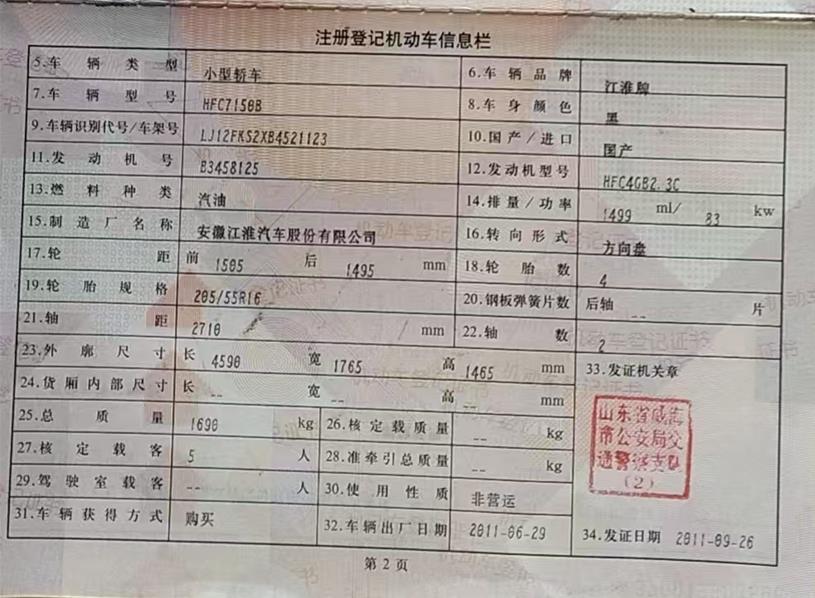 注册登记机动车信息栏
5.车辆类型 小型轿车 6.车辆品牌 江淮牌
7.车辆型号 HFC7150B 8.车身颜色 黑
9.车辆识别代号/车架号 LJ12FKS2XB4521123 10.国产/进口 国产
11.发动机号 B3458125 12.发动机型号 HFC4GB2.3C
13.燃料种类 汽油 14.排量/功率 1499 ml/ 83 kw
15.制造厂名称 安徽江淮汽车股份有限公司 16.转向形式 方向盘
17.轮距 前 1505 后 1495 mm 18.轮胎数 4
19.轮胎规格 205/55R16 20.钢板弹簧片数 后轴 -- 片
21.轴距 2710 mm 22.轴数 2
23.外廓尺寸 长 4590 宽 1765 高 1465 mm 33.发证机关章
24.货厢内部尺寸 长 -- 宽 -- 高 -- mm
山东省威海
市公安局交
通警察支队
(2)
25.总质量 1690 kg 26.核定载质量 -- kg
27.核定载客 5 人 28.准牵引总质量 -- kg
29.驾驶室载客 -- 人 30.使用性质 非营运
31.车辆获得方式 购买 32.车辆出厂日期 2011-06-29 34.发证日期 2011-09-26
第2页